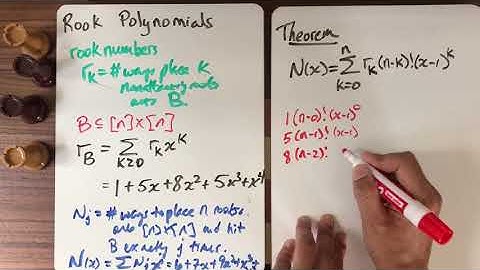 Rook Polynomials
rook numbers
r_k = # ways place K
nonattacking rooks
onto B.
B ⊆ [n]×[n]
r_B = ∑_{k≥0} r_k x^k
= 1+5x+8x²+5x³+x⁴
N_j = # ways to place n rooks
onto [n]×[n] and hit
B exactly j times.
N(x) = ∑ N_j x^j = 6+7x+9x²+x³+
Theorem
N(x) = ∑_{k=0}^{n} r_k (n-k)! (x-1)^k
1(n-0)!(x-1)^0
5(n-1)!(x-1)
8(n-2)!